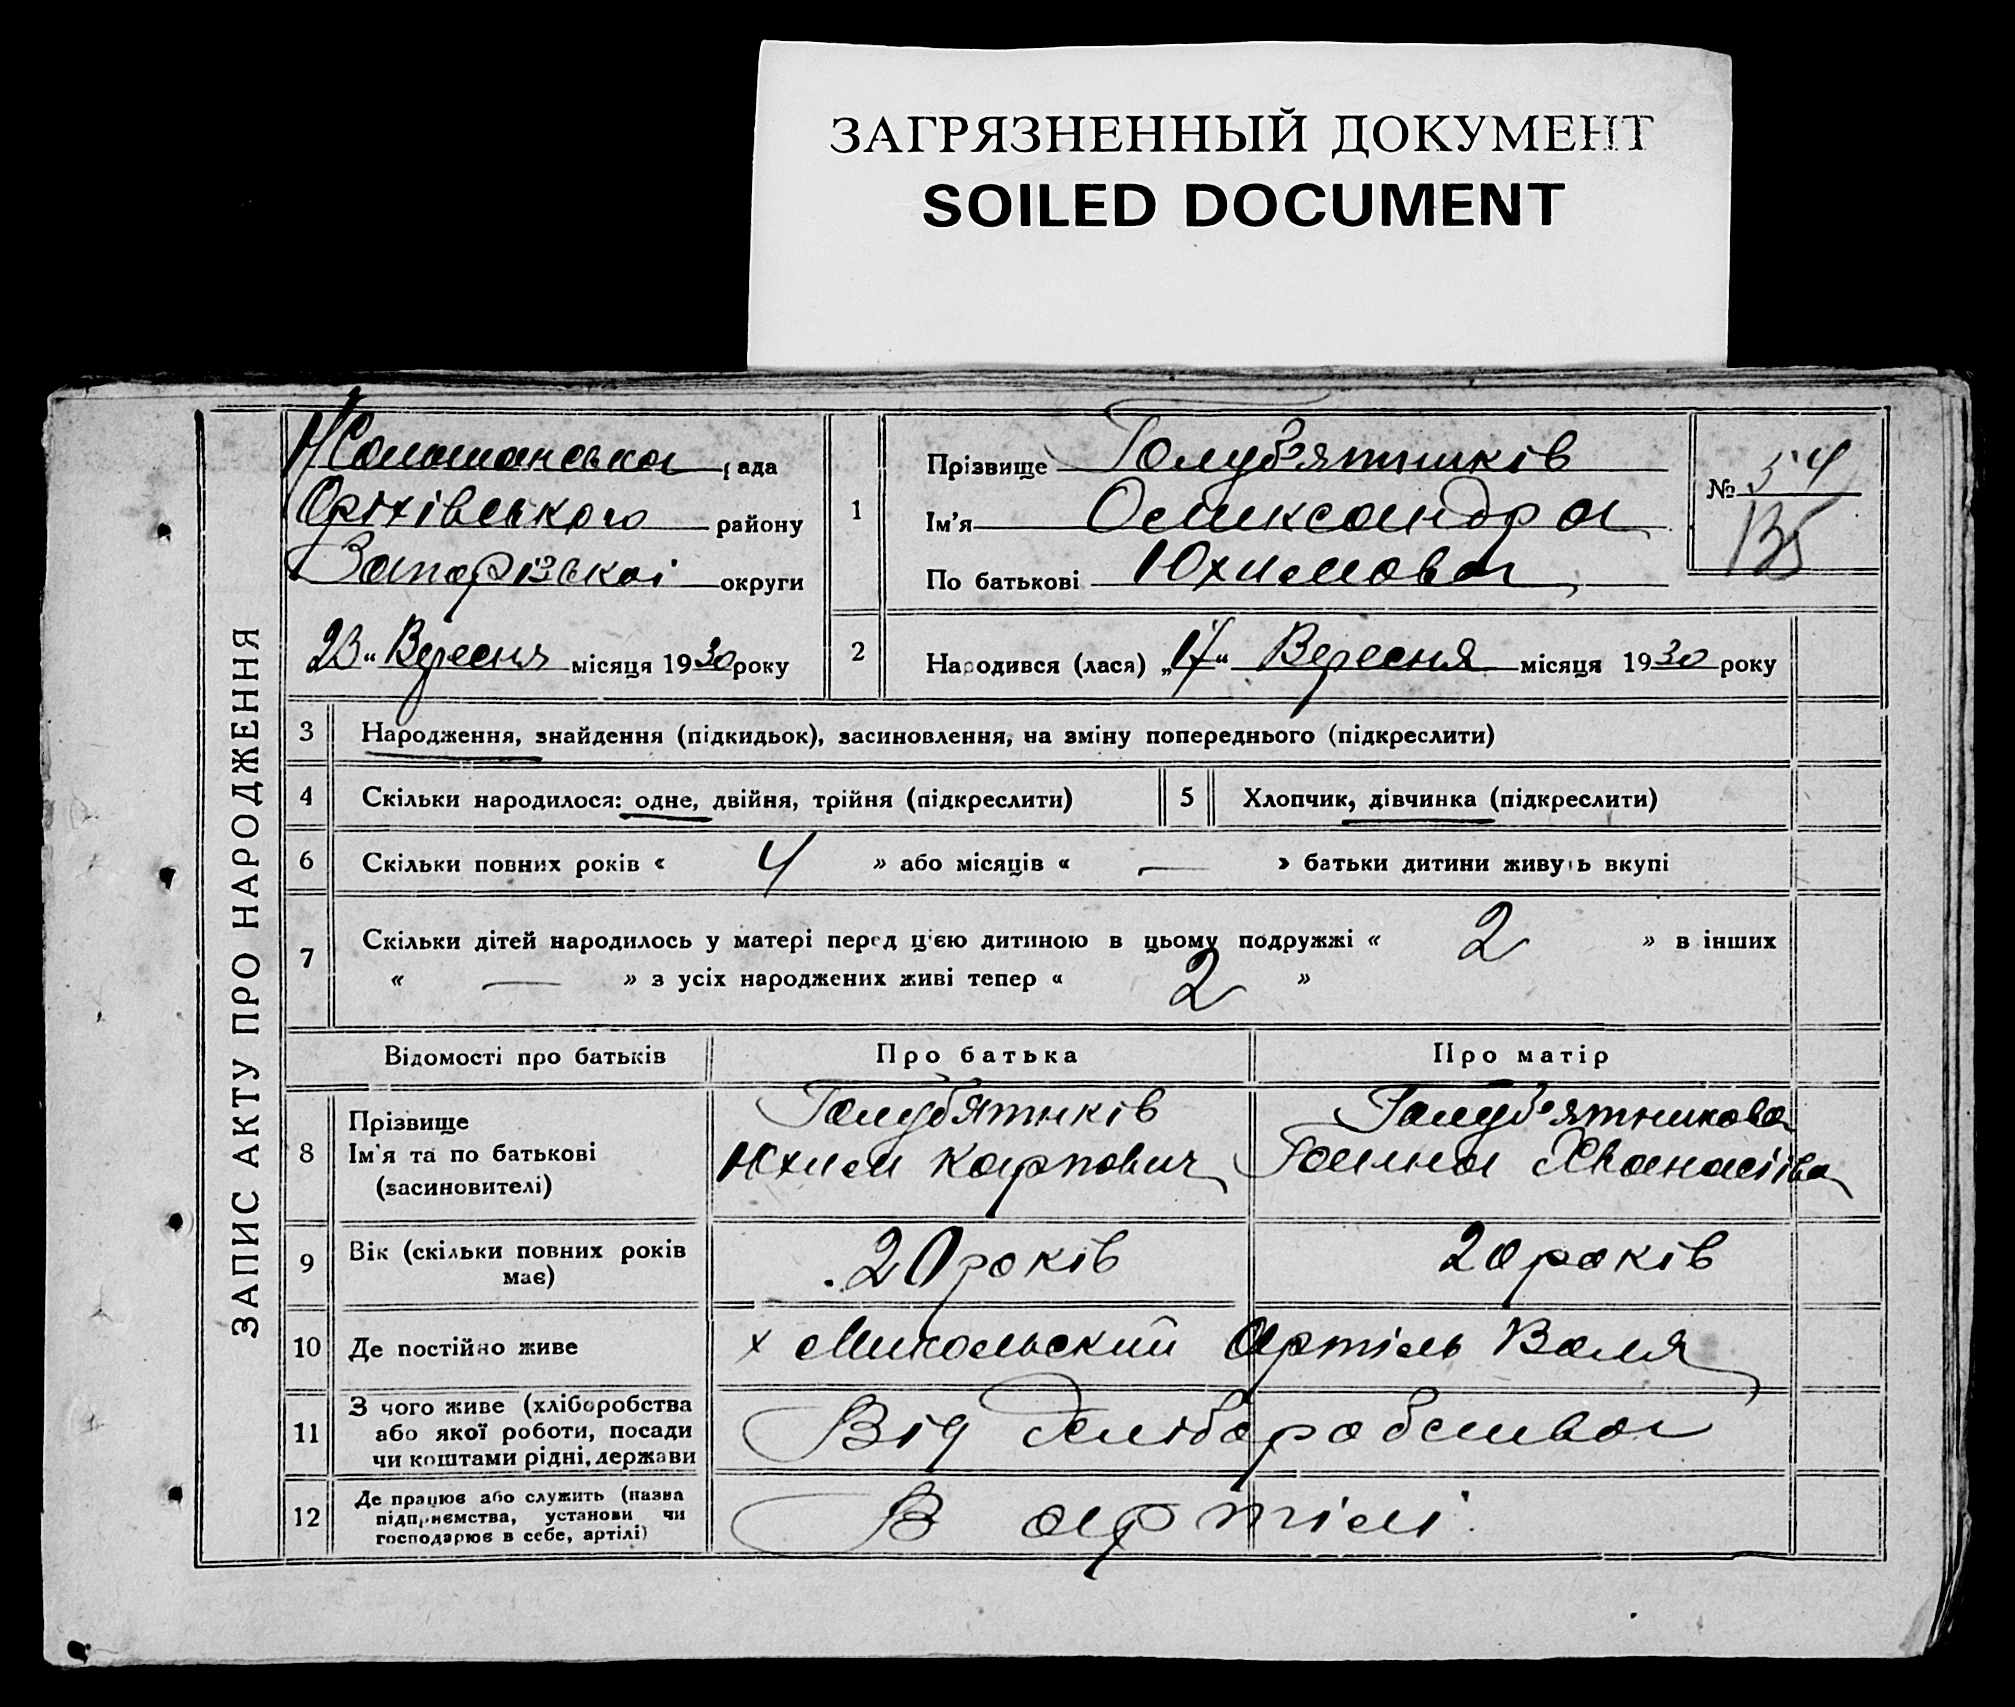 ЗАГРЯЗНЕННЫЙ ДОКУМЕНТ
SOILED DOCUMENT
ЗАПИС АКТУ ПРО НАРОДЖЕННЯ
рада
Оріхівського району
Запорізькоі округи
23 „ Вересня місяця 1930 року
1
Прізвище Голуб'ятників
Ім'я Олександра
По батькові Юхимова
№ 54
135
2
Народився (лася) „17“ Вересня місяця 1930 року
3 Народження, знайдення (підкидьок), засиновлення, на зміну попереднього (підкреслити)
4 Скільки народилося: одне, двійня, трійня (підкреслити) 5 Хлопчик, дівчинка (підкреслити)
6 Скільки повних років « 4 » або місяців « — » батьки дитини живуть вкупі
7 Скільки дітей народилось у матері перед цією дитиною в цьому подружжі « 2 » в інших
« — » з усіх народжених живі тепер « 2 »
Відомості про батьків Про батька Про матір
8 Прізвище
Ім'я та по батькові
(засиновителі)
Голубятнків
Юхим Карпович
Голуб'ятникова
Ганна Хванасіівна
9 Вік (скільки повних років має)
20 років
20 років
10 Де постійно живе х Микольский Артіль Воля
11 З чого живе (хліборобства
або якої роботи, посади
чи коштами рідні, держави
Від хліборобства
12 Де працює або служить (назва
підприємства, установи чи
господарює в себе, артілі)
В артілі